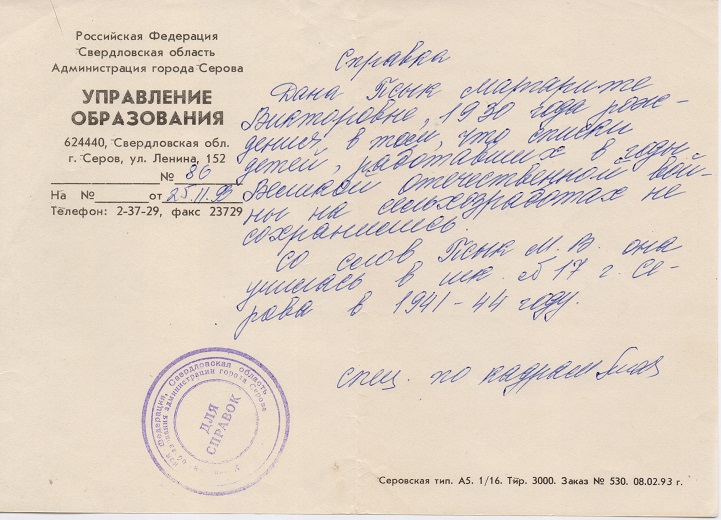 Российская Федерация
Свердловская область
Администрация города Серова
УПРАВЛЕНИЕ
ОБРАЗОВАНИЯ
624440, Свердловская обл.
г. Серов, ул. Ленина, 152
№ 86
На № от 25.11.93
Телефон: 2-37-29, факс 23729
Справка
Дана Псык Маргарите
Викторовне, 1930 года рож-
дения, в том, что списки
детей, работавших в годы
Великой отечественной вой-
ны на сельхозработах не
сохранились.
Со слов Псык М. В. она
училась в шк. № 17 г. Се-
рова в 1941-44 году.
спец. по кадрам
Федерация, Свердловская область
администрации города Серова
ДЛЯ
СПРАВОК
Серовская тип. А5. 1/16. Тир. 3000. Заказ № 530. 08.02.93 г.